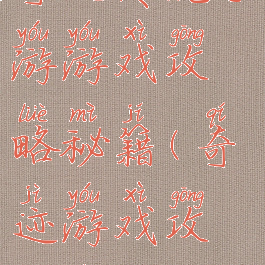 yóu yóu xì gōng
游游戏攻
lüè mì jí qí
略秘籍(奇
jì yóu xì gōng
迹游戏攻